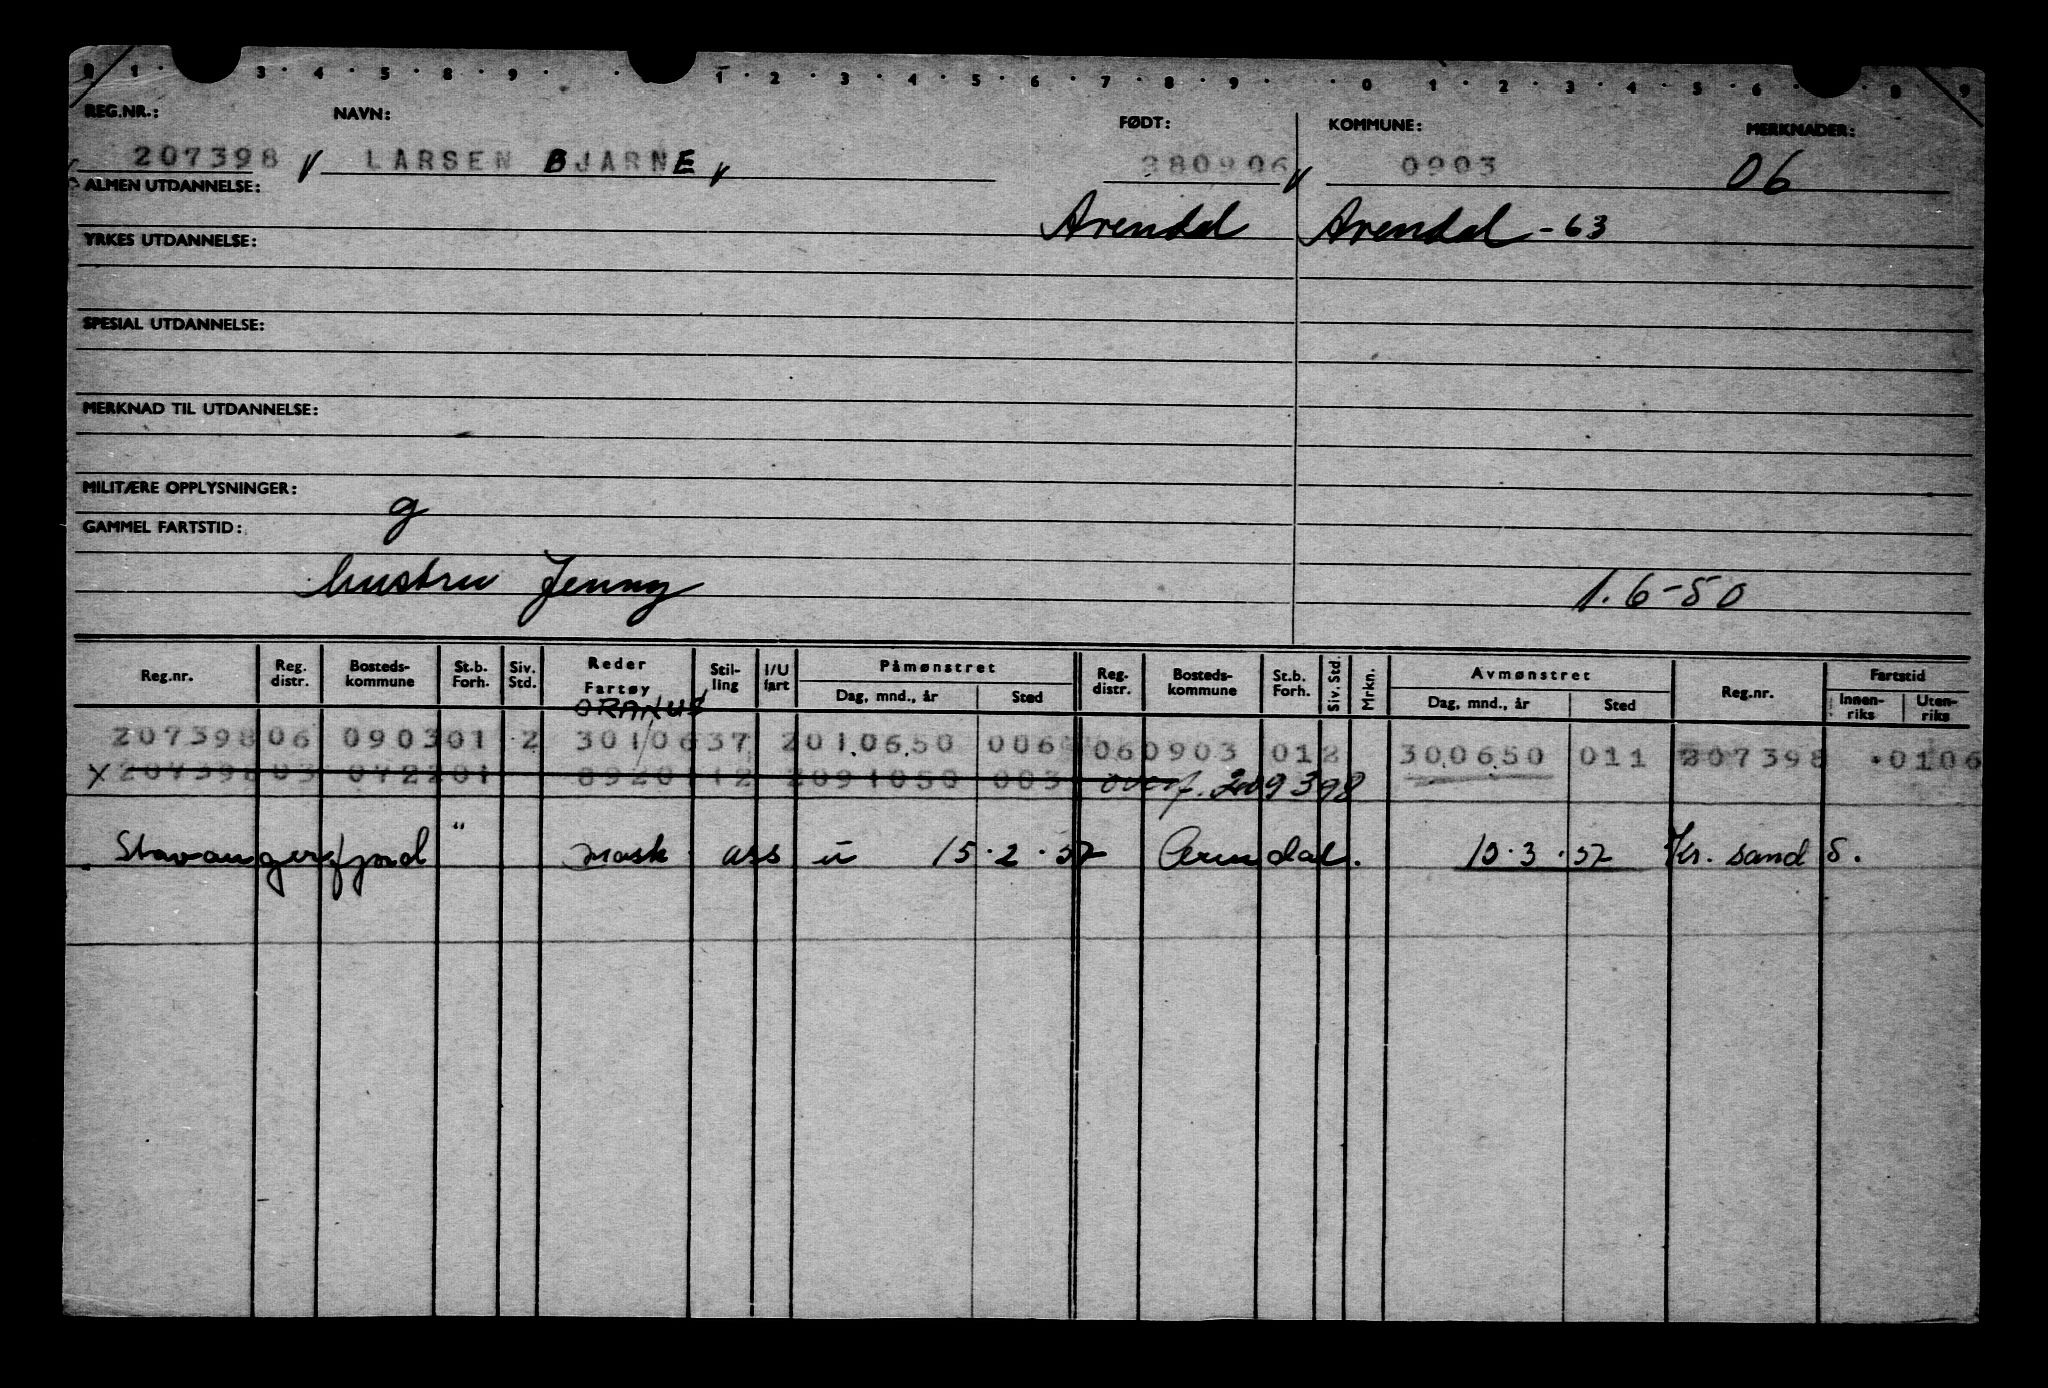 0 1 · 3 · 4 · 5 · 8 · 9 · · 1 · 2 · 3 · 4 · 5 · 6 · 7 · 8 · 9 · · 0 · 1 · 2 · 3 · 4 · 5 · 6 · 8 · 9
REG.NR.: NAVN: FØDT: KOMMUNE: MERKNADER:
207398 LARSEN BJARNE 280906 0903 06
ALMEN UTDANNELSE:
Arendal Arendal - 63
YRKES UTDANNELSE:
SPESIAL UTDANNELSE:
MERKNAD TIL UTDANNELSE:
MILITÆRE OPPLYSNINGER:
g
GAMMEL FARTSTID:
hustru Jenny 1.6-50
Reg.nr. Reg. distr. Bosteds-kommune St.b. Forh. Siv. Std. Reder Fartøy Stil-ling I/U fart Påmønstret Dag, mnd., år Sted Reg. distr. Bosteds-kommune St.b. Forh. Siv. Std. Mrkn. Avmønstret Dag, mnd., år Sted Reg.nr. Fartstid Innen-riks Uten-riks
ORANUS
207398 06 0903 01 2 301/06 37 2 010650 006 06 0903 01 2 300650 011 207398 0106
X 207398 03 0722 01 8920 12 2 091050 003 overf. 209398
Stavangerfjord " mask ass u 15.2.52 Arendal. 10.3.52 Kr. sand S.